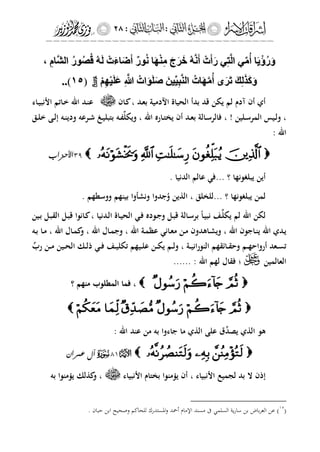 : الفصل الثاني : الباب الثاني : ٢٨
وَرُؤْيَا أُمِّي الَّتِي رَأَتْ أَنَّهُ خَرَجَ مِنْهَا نُورٌ أَضَاءَتْ لَهُ قُصُورُ الشَّامِ ،
وَكَذَلِكَ تَرَى أُمَّهَاتُ النَّبِيِّينَ صَلَوَاتُ اللَّهِ عَلَيْهِمْ (١٥)..
أي أن آدم لم يكن قد بدأ الحياة الآدمية بعد ، كان عند الله خاتم الأنبياء
، وليس المرسلين ! ، فالرسالة بعد أن يختاره الله ، ويكلِّفه بتبليغ شرعه ودينه إلى خلق
الله :
﴿ الَّذِينَ يُبَلِّغُونَ رِسَالَاتِ اللَّهِ وَيَخْشَوْنَهُ ﴾ ٣٩ الأحزاب
أين يبلغونها ؟ ... في عالم الدنيا .
لمن يبلغونها ؟ ... للخلق ، الذين وُجدوا ونشأوا بينهم ووسطهم .
لكن الله لم يكلِّف نبياً برسالة قبل وجوده في الحياة الدنيا ، كانوا قبل القبل بين
يدي الله يناجون الله ، ويشاهدون من معاني عظمة الله ، وجمال الله ، وكمال الله ، ما به
تسعد أرواحهم وحقائقهم النورانية ، ولم يكن عليهم تكليف في ذلك الحين من ربِّ
العالمين ﷻ ؛ فقال لهم الله : ......
﴿ ثُمَّ جَاءَكُمْ رَسُولٌ ﴾ ، فما المطلوب منهم ؟
﴿ ثُمَّ جَاءَكُمْ رَسُولٌ مُصَدِّقٌ لِمَا مَعَكُمْ ﴾
هو الذي يصدِّق على الذي ما جاءوا به من عند الله :
﴿ لَتُؤْمِنُنَّ بِهِ وَلَتَنْصُرُنَّهُ ﴾ ٨١ آل عمران
إذن لا بد لجميع الأنبياء ، أن يؤمنوا بختام الأنبياء ﷺ ، وكذلك يؤمنوا به
(١٥) عن العرباض بن سارية السلمي في مسند الإمام أحمد والمستدرك للحاكم وصحيح ابن حبان .